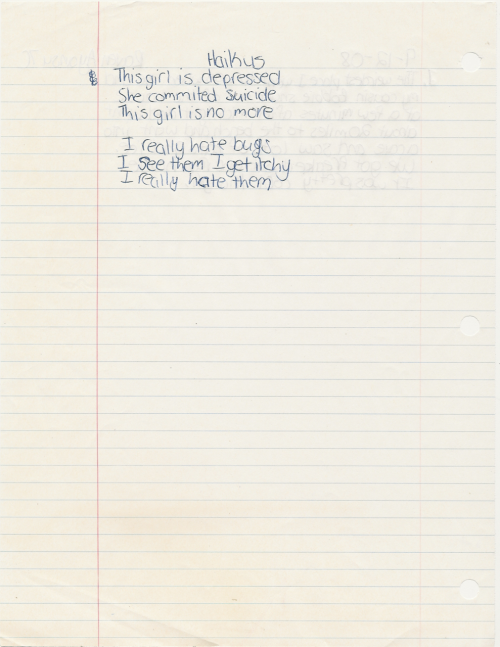 Haikus
This girl is depressed
She commited suicide
This girl is no more
I really hate bugs
I see them I get itchy
I really hate them